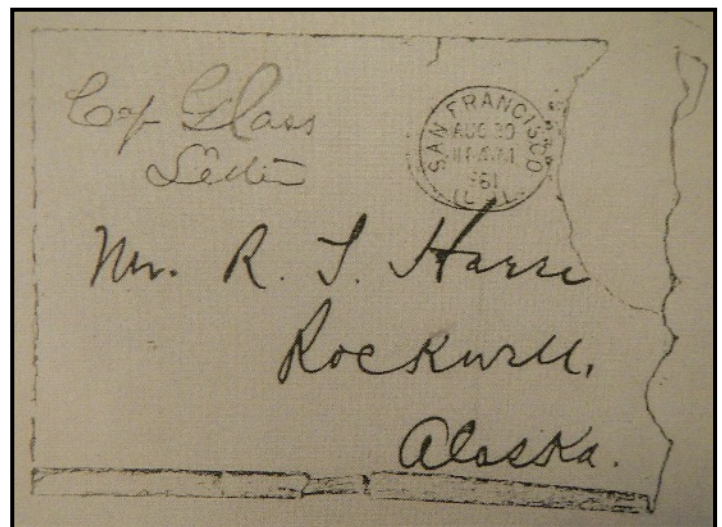 Cap Glass
Letter
SAN FRANCISCO
AUG 30
11 AM
Mr. R. T. Harri
Rockwell,
Alaska.